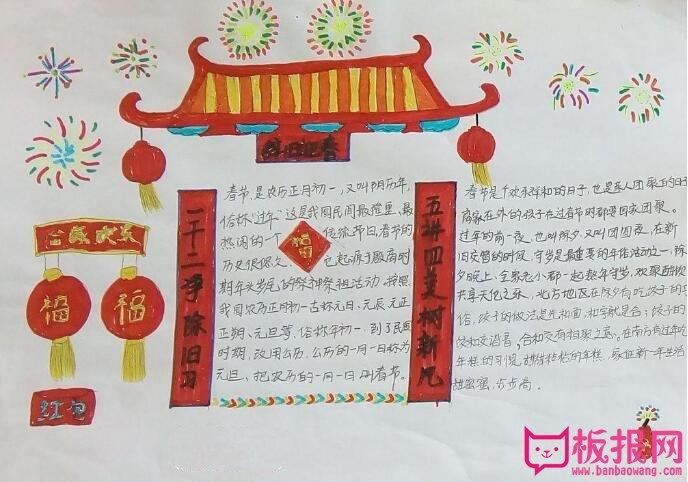 辞旧迎春
合家欢乐
福
福
红包
一干二净除旧习
五讲四美树新风
福
春节,是农历正月初一,又叫阴历年,
俗称"过年"这是我国民间最隆重、最
热闹的一个传统节日,春节的
历史很悠久、它起源于殷商时
期年头岁尾的祭神祭祖活动,按照
我国农历正月初一古称元日、元辰、元正
正朔、元旦等,俗称年初一,到了民国
时期,改用公历,公历的一月一日称为
元旦,把农历的一月一日叫春节。
春节是个欢乐祥和的日子,也是亲人团聚的日子
离家在外的孩子在过春节时都要回家团聚。
过年的前一夜,也叫除夕,又叫团圆夜,在新
旧交替的时候,守岁是最重要的年俗活动之一,除
夕晚上,全家老小都一起熬年守岁,欢聚酣饮
共享天伦之乐,北方地区在除夕有吃饺子的习
俗,饺子的做法是先和面,和字就是合;饺子的
饺和交谐音,合和交有相聚之意。在南方有过年吃
年糕的习惯,甜甜粘粘的年糕,象征新一年生活
甜蜜蜜,步步高。
板报网
www.banbaowang.com